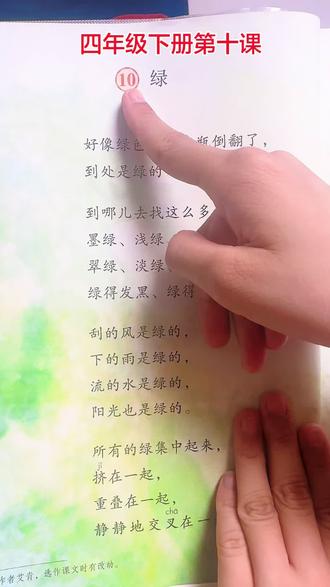 四年级下册第十课
10 绿
好像绿色 瓶倒翻了，
到处是绿的
到哪儿去找这么多
墨绿、浅绿
翠绿、淡绿
绿得发黑、绿得
刮的风是绿的，
下的雨是绿的，
流的水是绿的，
阳光也是绿的。
所有的绿集中起来，
jǐ
挤在一起，
重叠在一起，
chā
静静地交叉在一
作者艾青，选作课文时有改动。